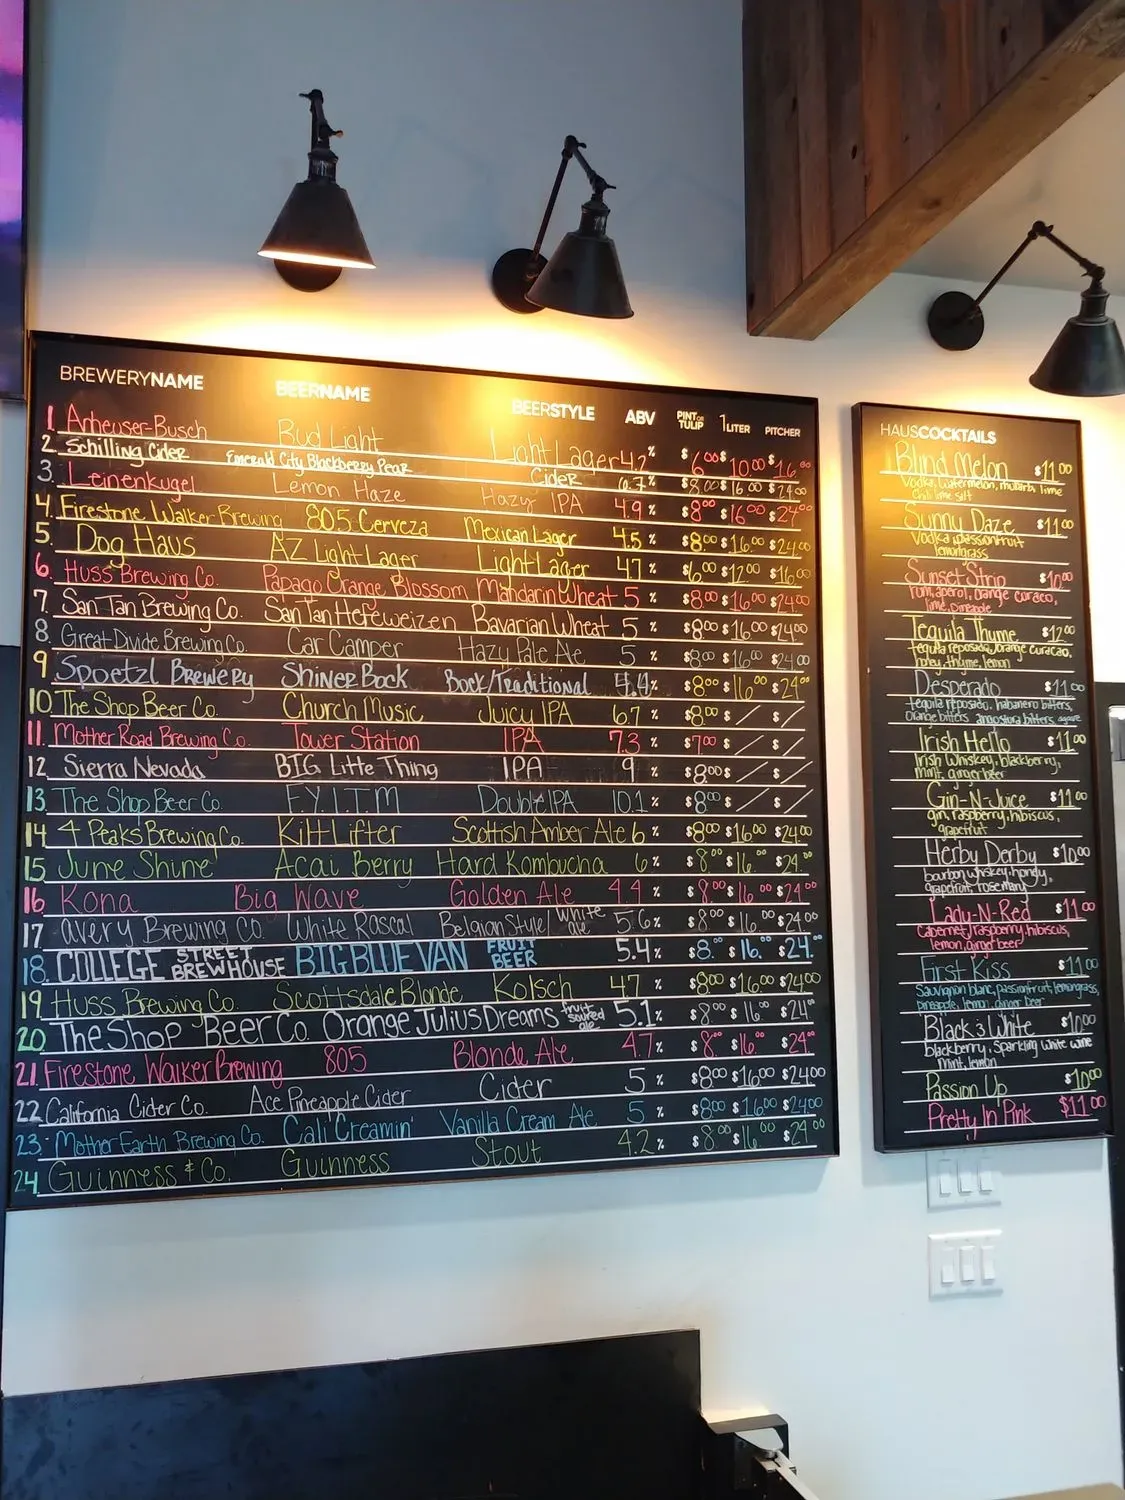 BREWERYNAME BEERNAME BEERSTYLE ABV PINT OR TULIP 1LITER PITCHER
1. Anheuser-Busch Bud Light Light Lager 4.2% $6.00 $10.00 $16.00
2. Schilling Cider Emerald City Blackberry Pear Cider 6.7% $8.00 $16.00 $24.00
3. Leinenkugel Lemon Haze Hazy IPA 4.9% $8.00 $16.00 $24.00
4. Firestone Walker Brewing 805 Cerveza Mexican Lager 4.5% $8.00 $16.00 $24.00
5. Dog Haus AZ Light Lager Light Lager 4.7% $6.00 $12.00 $16.00
6. Huss Brewing Co. Papago Orange Blossom Mandarin Wheat 5% $8.00 $16.00 $24.00
7. San Tan Brewing Co. San Tan Hefeweizen Bavarian Wheat 5% $8.00 $16.00 $24.00
8. Great Divide Brewing Co. Car Camper Hazy Pale Ale 5% $8.00 $16.00 $24.00
9 Spoetzl Brewery Shiner Bock Bock/Traditional 4.4% $8.00 $16.00 $24.00
10. The Shop Beer Co. Church Music Juicy IPA 6.7% $8.00 $ / $ /
11. Mother Road Brewing Co. Tower Station IPA 7.3% $7.00 $ / $ /
12 Sierra Nevada BIG Litte Thing IPA 9% $8.00 $ / $ /
13 The Shop Beer Co. F.Y.I.T.M Double IPA 10.1% $8.00 $ / $ /
14 4 Peaks Brewing Co. Kilt Lifter Scottish Amber Ale 6% $8.00 $16.00 $24.00
15 June Shine Acai Berry Hard Kombucha 6% $8.00 $16.00 $24.00
16 Kona Big Wave Golden Ale 4.4% $8.00 $16.00 $24.00
17 avery Brewing Co. White Rascal Belgian Style/White ale 5.6% $8.00 $16.00 $24.00
18. COLLEGE STREET BREWHOUSE BIG BLUE VAN FRUIT BEER 5.4% $8.00 $16.00 $24.00
19 Huss Brewing Co. Scottsdale Blonde Kolsch 4.7% $8.00 $16.00 $24.00
20 The Shop Beer Co. Orange Julius Dreams fruit soured ale 5.1% $8.00 $16.00 $24.00
21. Firestone Walker Brewing 805 Blonde Ale 4.7% $8.00 $16.00 $24.00
22 California Cider Co. Ace Pineapple Cider Cider 5% $8.00 $16.00 $24.00
23. Mother Earth Brewing Co. Cali Creamin' Vanilla Cream Ale 5% $8.00 $16.00 $24.00
24 Guinness & Co. Guinness Stout 4.2% $8.00 $16.00 $24.00
HAUSCOCKTAILS
Blind Melon $11.00
Vodka, watermelon, lime
chili lime salt
Sunny Daze $11.00
Vodka, passionfruit
lemongrass
Sunset Strip $10.00
rum, aperol, orange curaco,
lime, pineapple
Tequila Thyme $12.00
tequila reposado, orange curacao,
honey, thyme, lemon
Desperado $11.00
tequila reposado, habanero bitters,
orange bitters, angostura bitters, agave
Irish Hello $11.00
Irish Whiskey, blackberry,
mint, ginger beer
Gin-N-Juice $11.00
gin, raspberry, hibiscus,
grapefruit
Herby Derby $10.00
bourbon whiskey, honey,
grapefruit, rosemary
Lady-N-Red $11.00
Cabernet, raspberry, hibiscus,
lemon, ginger beer
First Kiss $11.00
Sauvignon blanc, passionfruit, lemongrass,
pineapple, lemon, ginger beer
Black & White $10.00
blackberry, sparkling white wine
mint, lemon
Passion Up $10.00
Pretty In Pink $11.00